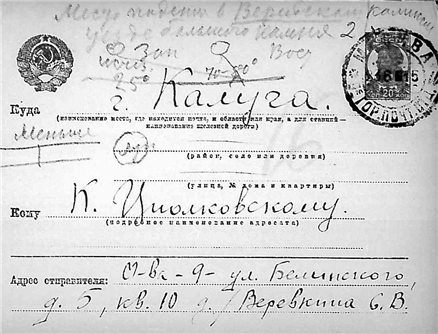 Место
уезде большого камня 2
Зап Вос
25°
МОСКВА
20
Куда г. Калуга.
(наименование места, где находится почта, и области или края, а для станций —
наименование железной дороги)
Меньше
(район, село или деревня)
(улица, № дома и квартиры)
Кому К. Циолковскому.
(подробное наименование адресата)
Адрес отправителя: М-ва - 9 - ул. Белинского,
д. 5, кв. 10 Веревкина С. В.